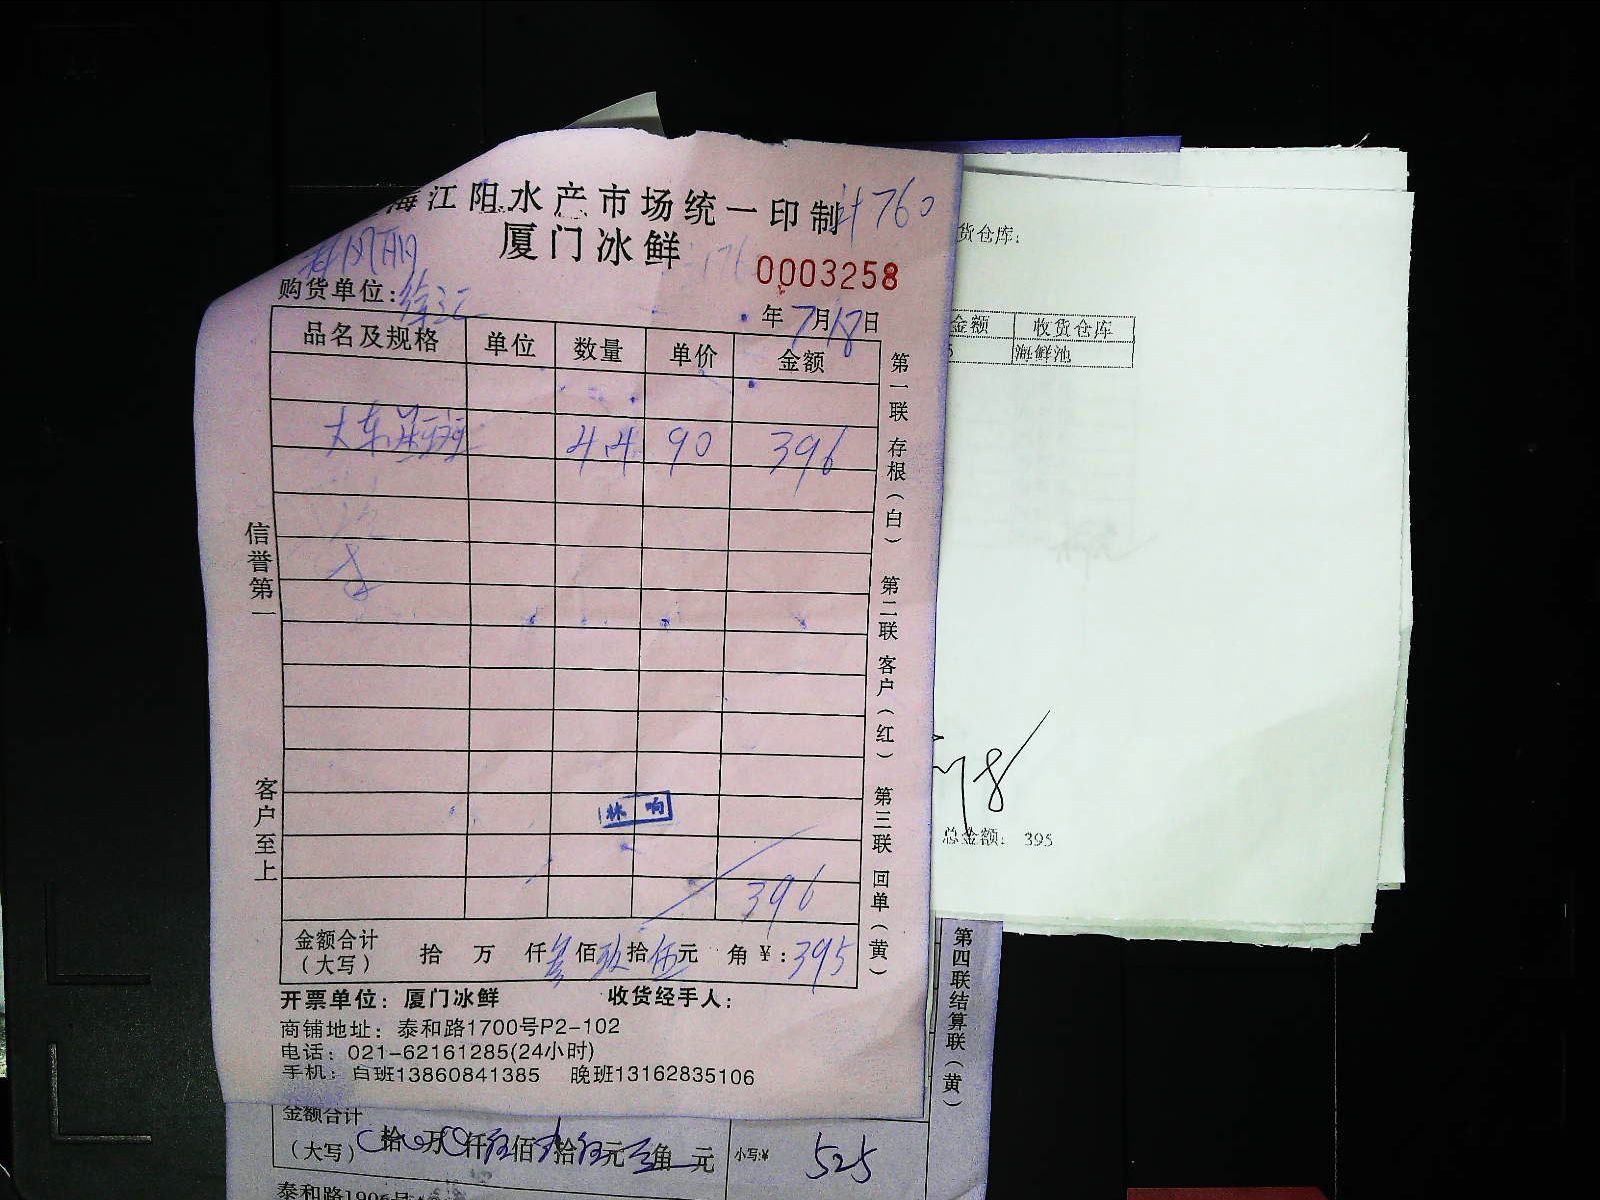 海江阳水产市场统一印制
计760
厦门冰鲜
0003258
购货单位:徐汇
年7月18日
品名及规格 单位 数量 单价 金额
大东星斑 44 90 396
396
金额合计(大写) 拾 万 仟叁佰玖拾伍元 角¥:395
开票单位:厦门冰鲜 收货经手人:
商铺地址:泰和路1700号P2-102
电话:021-62161285(24小时)
手机:白班13860841385 晚班13162835106
信誉第一
客户至上
第一联 存根(白) 第二联 客户(红) 第三联 回单(黄)
林响
货仓库:
金额 收货仓库
海鲜池
总金额: 395
第四联结算联(黄)
金额合计
(大写) 拾 万 仟伍佰 拾伍元 角 元 小写:¥ 525